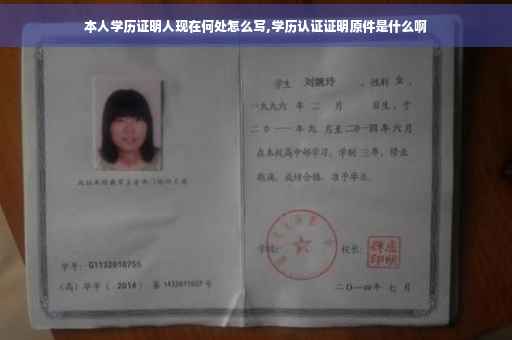 本人学历证明人现在何处怎么写,学历认证证明原件是什么啊
学生 刘婉玲 ，性别 女 ，
一九九六 年 二 月 日生，于
二〇一一 年 九 月至 二〇一四 年 六 月
在本校高中部学习，学制 三 年，修业
期满，成绩合格，准予毕业。
学校： 校长：
学号： G1132010755
（高）毕字（ 2014 ）第 1432011027 号
二〇一四年 七 月